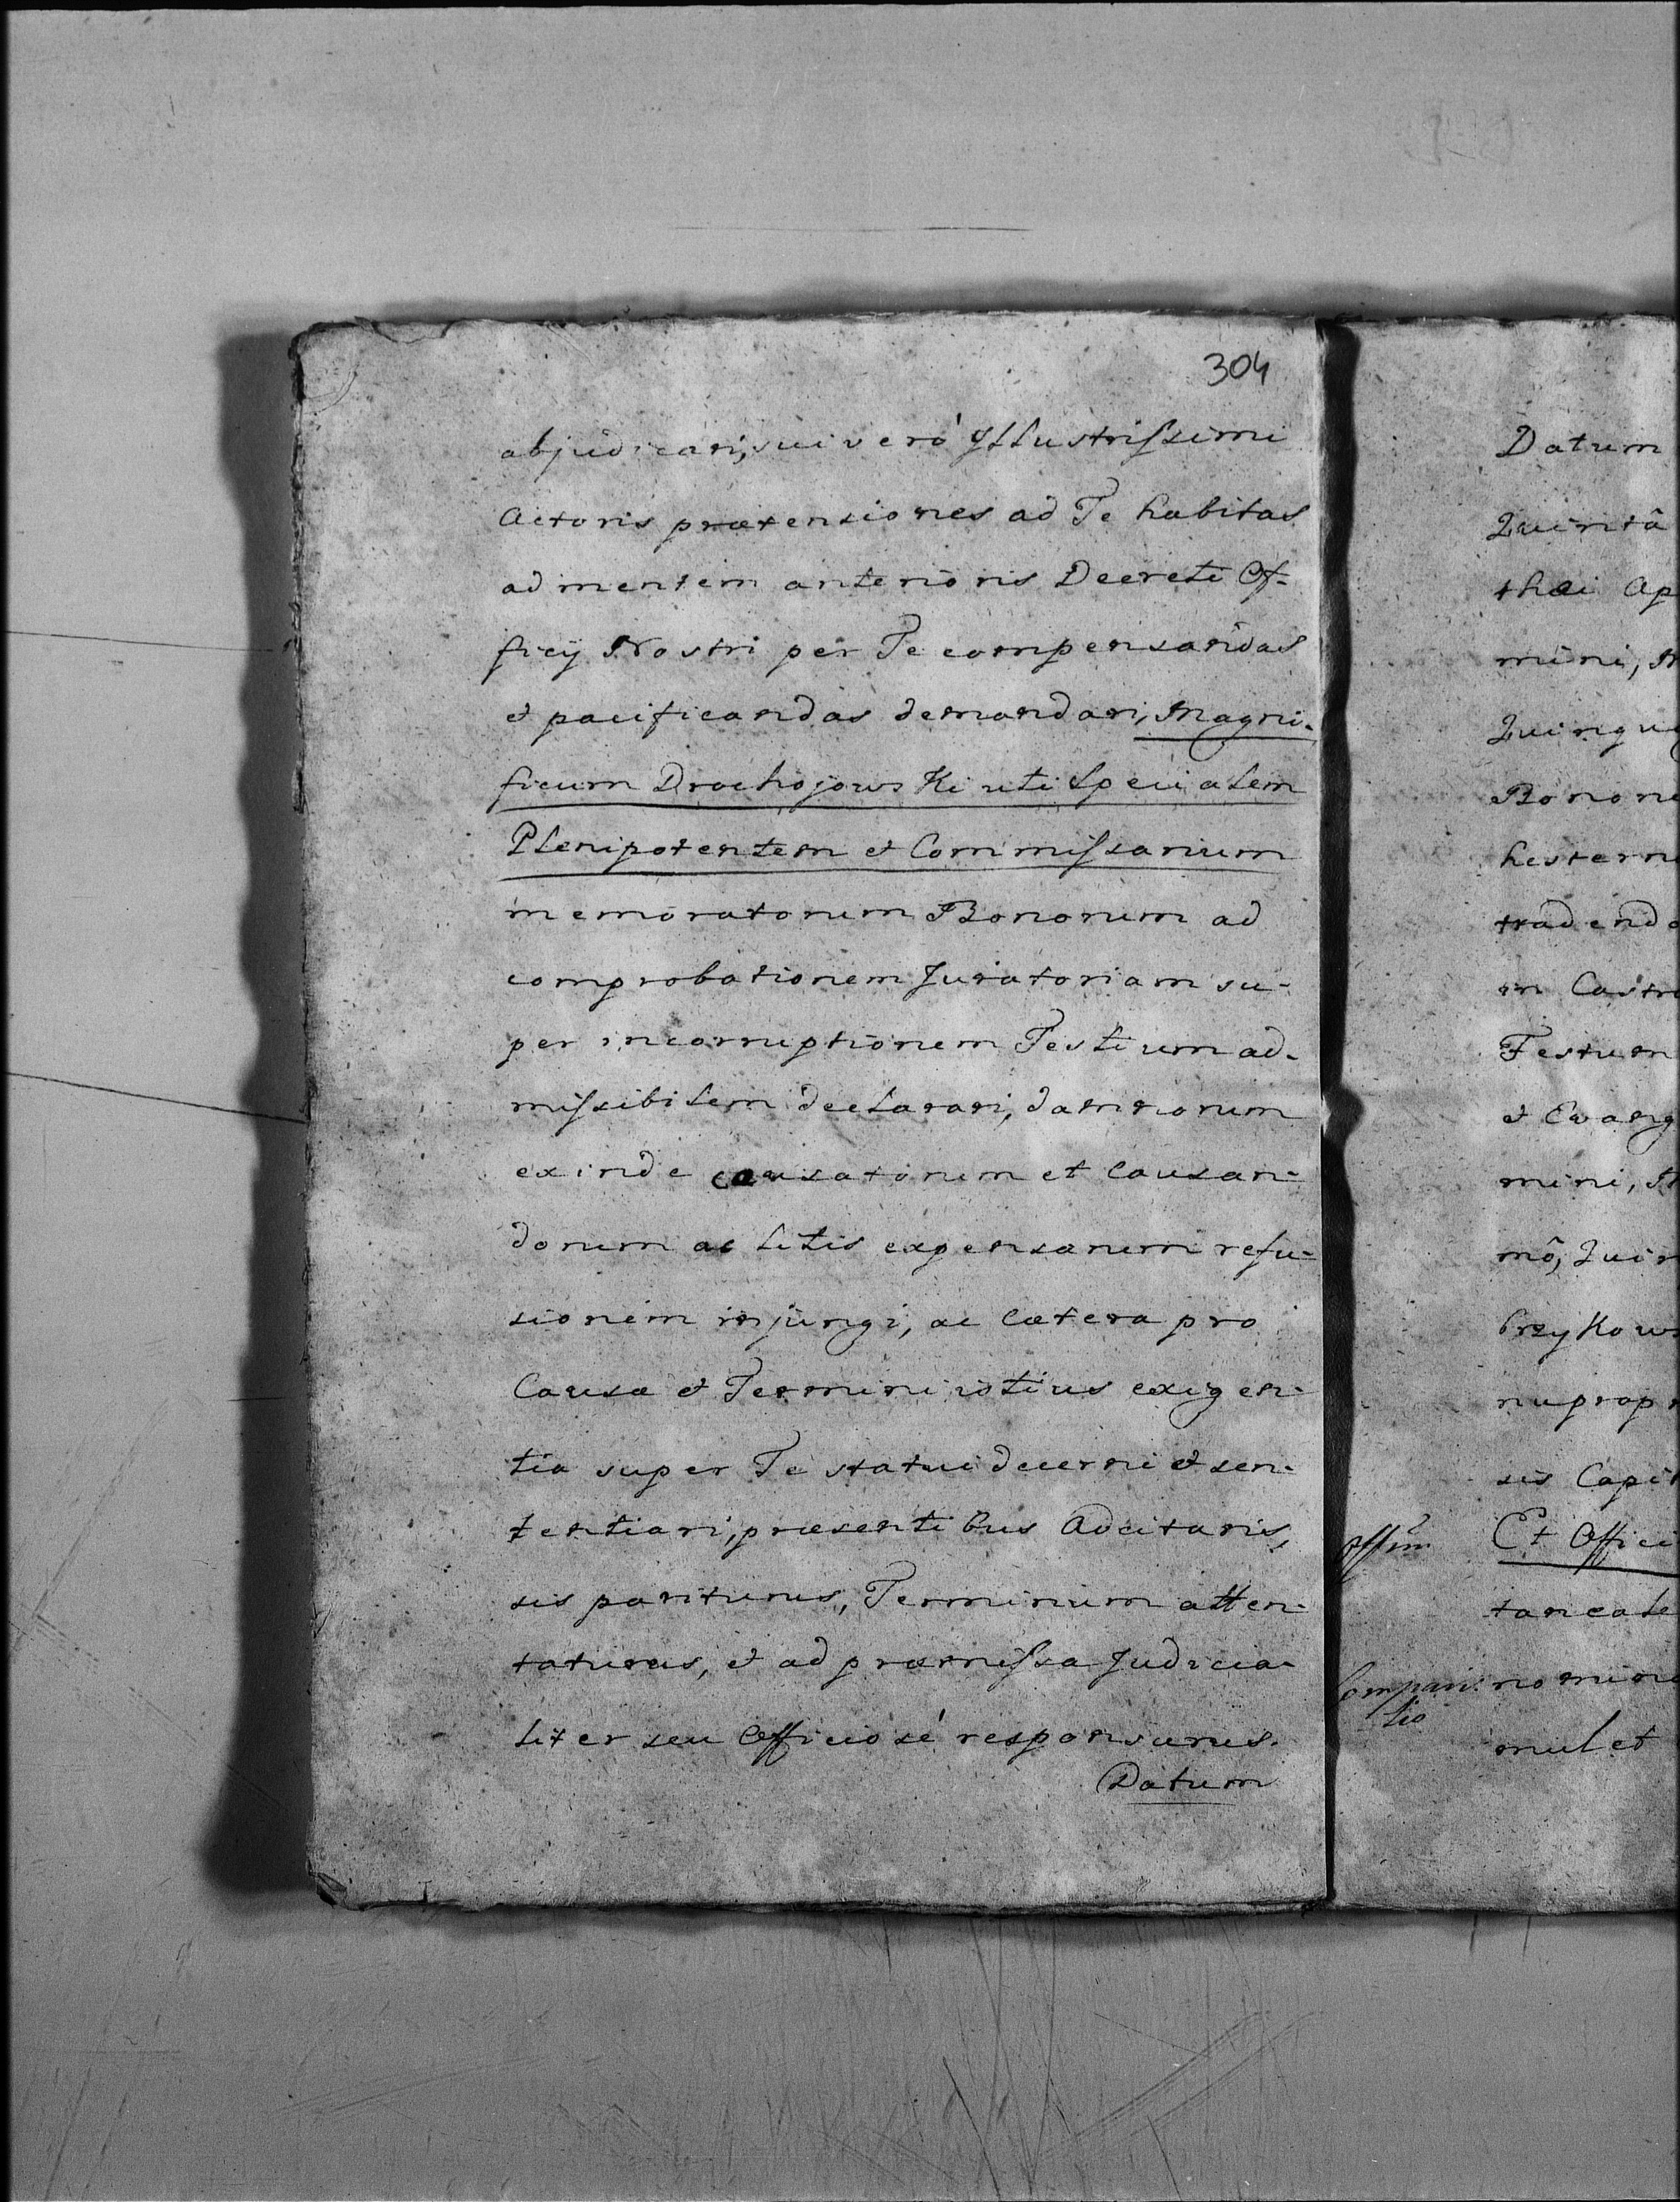 304
abjudicari, sui veró Jllustrissimi
Actoris prætensiones ad Te habitas
ad mentem anterioris Decreti Of-
ficij Nostri per Te compensandas
et pacificandas demandari, Magni-
ficum Drohojowski uti Specialem
Plenipotentem et Commissarium
memoratorum Bonorum ad
comprobationem Juratoriam su-
per incorruptionem Testium ad-
missibilem declarari, damnorum
exinde causatorum et causan-
dorum ac litis expensarum refu-
sionem injungi, ac cætera pro
Causæ et Termini istius exigen-
tia super Te statui decerni et sen-
tentiari, præsentibus Adcitaris,
sis pariturus, Terminum atten-
taturus, et ad præmissa Judicia-
liter seu Officiosé responsurus.
Datum
Datum
Quintâ
thæi Ap
mini, M
Quinqu
Bonon
hestern
tradend
in Castr
Festum
et Evang
mini, M
mô, Quin
brzykow
nuprop
sis Capit
Offm Et Offici
taneale
Compari- nomin
tio
mul et